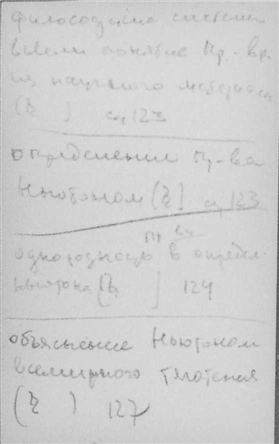 философские системы
ввели понятие пр. вр.
из научного материала
(ξ ) ст 123
определение пр-ва
Ньютоном (ξ] ст 123
однородность пр ва в определ.
Ньютона [ξ ] 124
объяснение Ньютоном
всемирного тяготения
(ξ ) 127